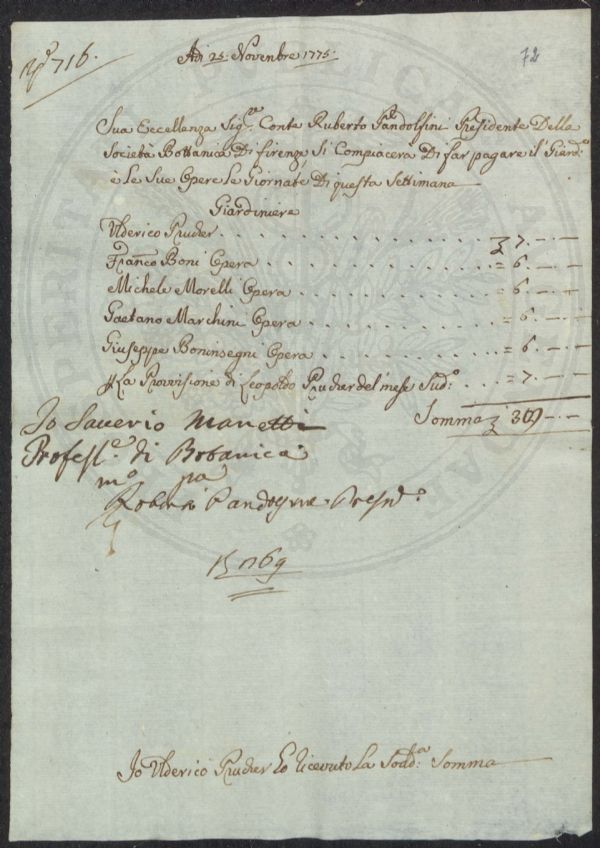 Nº 716.
Adì 25. Novembre 1775.
72
Sua Eccellenza Sigre. Conte Ruberto Pandolfini Presidente Della
Società Bottanica Di firenze, Si Compiacera Di far pagare il Giardre.
e Le Sue Opere Le Giornate Di questa Settimana
Giardiniere
Ulderico Prucher . . . . . . . . . . . . 7.—.—
Franco Boni Opera . . . . . . . . . . . = 6.—.—
Michele Morelli Opera . . . . . . . . . = 6.—.—
Gaetano Marchini Opera . . . . . . . . = 6.—.—
Giuseppe Boninsegni Opera . . . . . . = 6.—.—
La Provvisione di Leopoldo Prucher del mese Sudº. . . = 7.—.—
Somma
Io Saverio Manetti
Professe. di Botanica
mº pa
Roberto Pandolfini Presidº.
1769
Io Ulderico Prucher ho ricevuto La Sodda. Somma